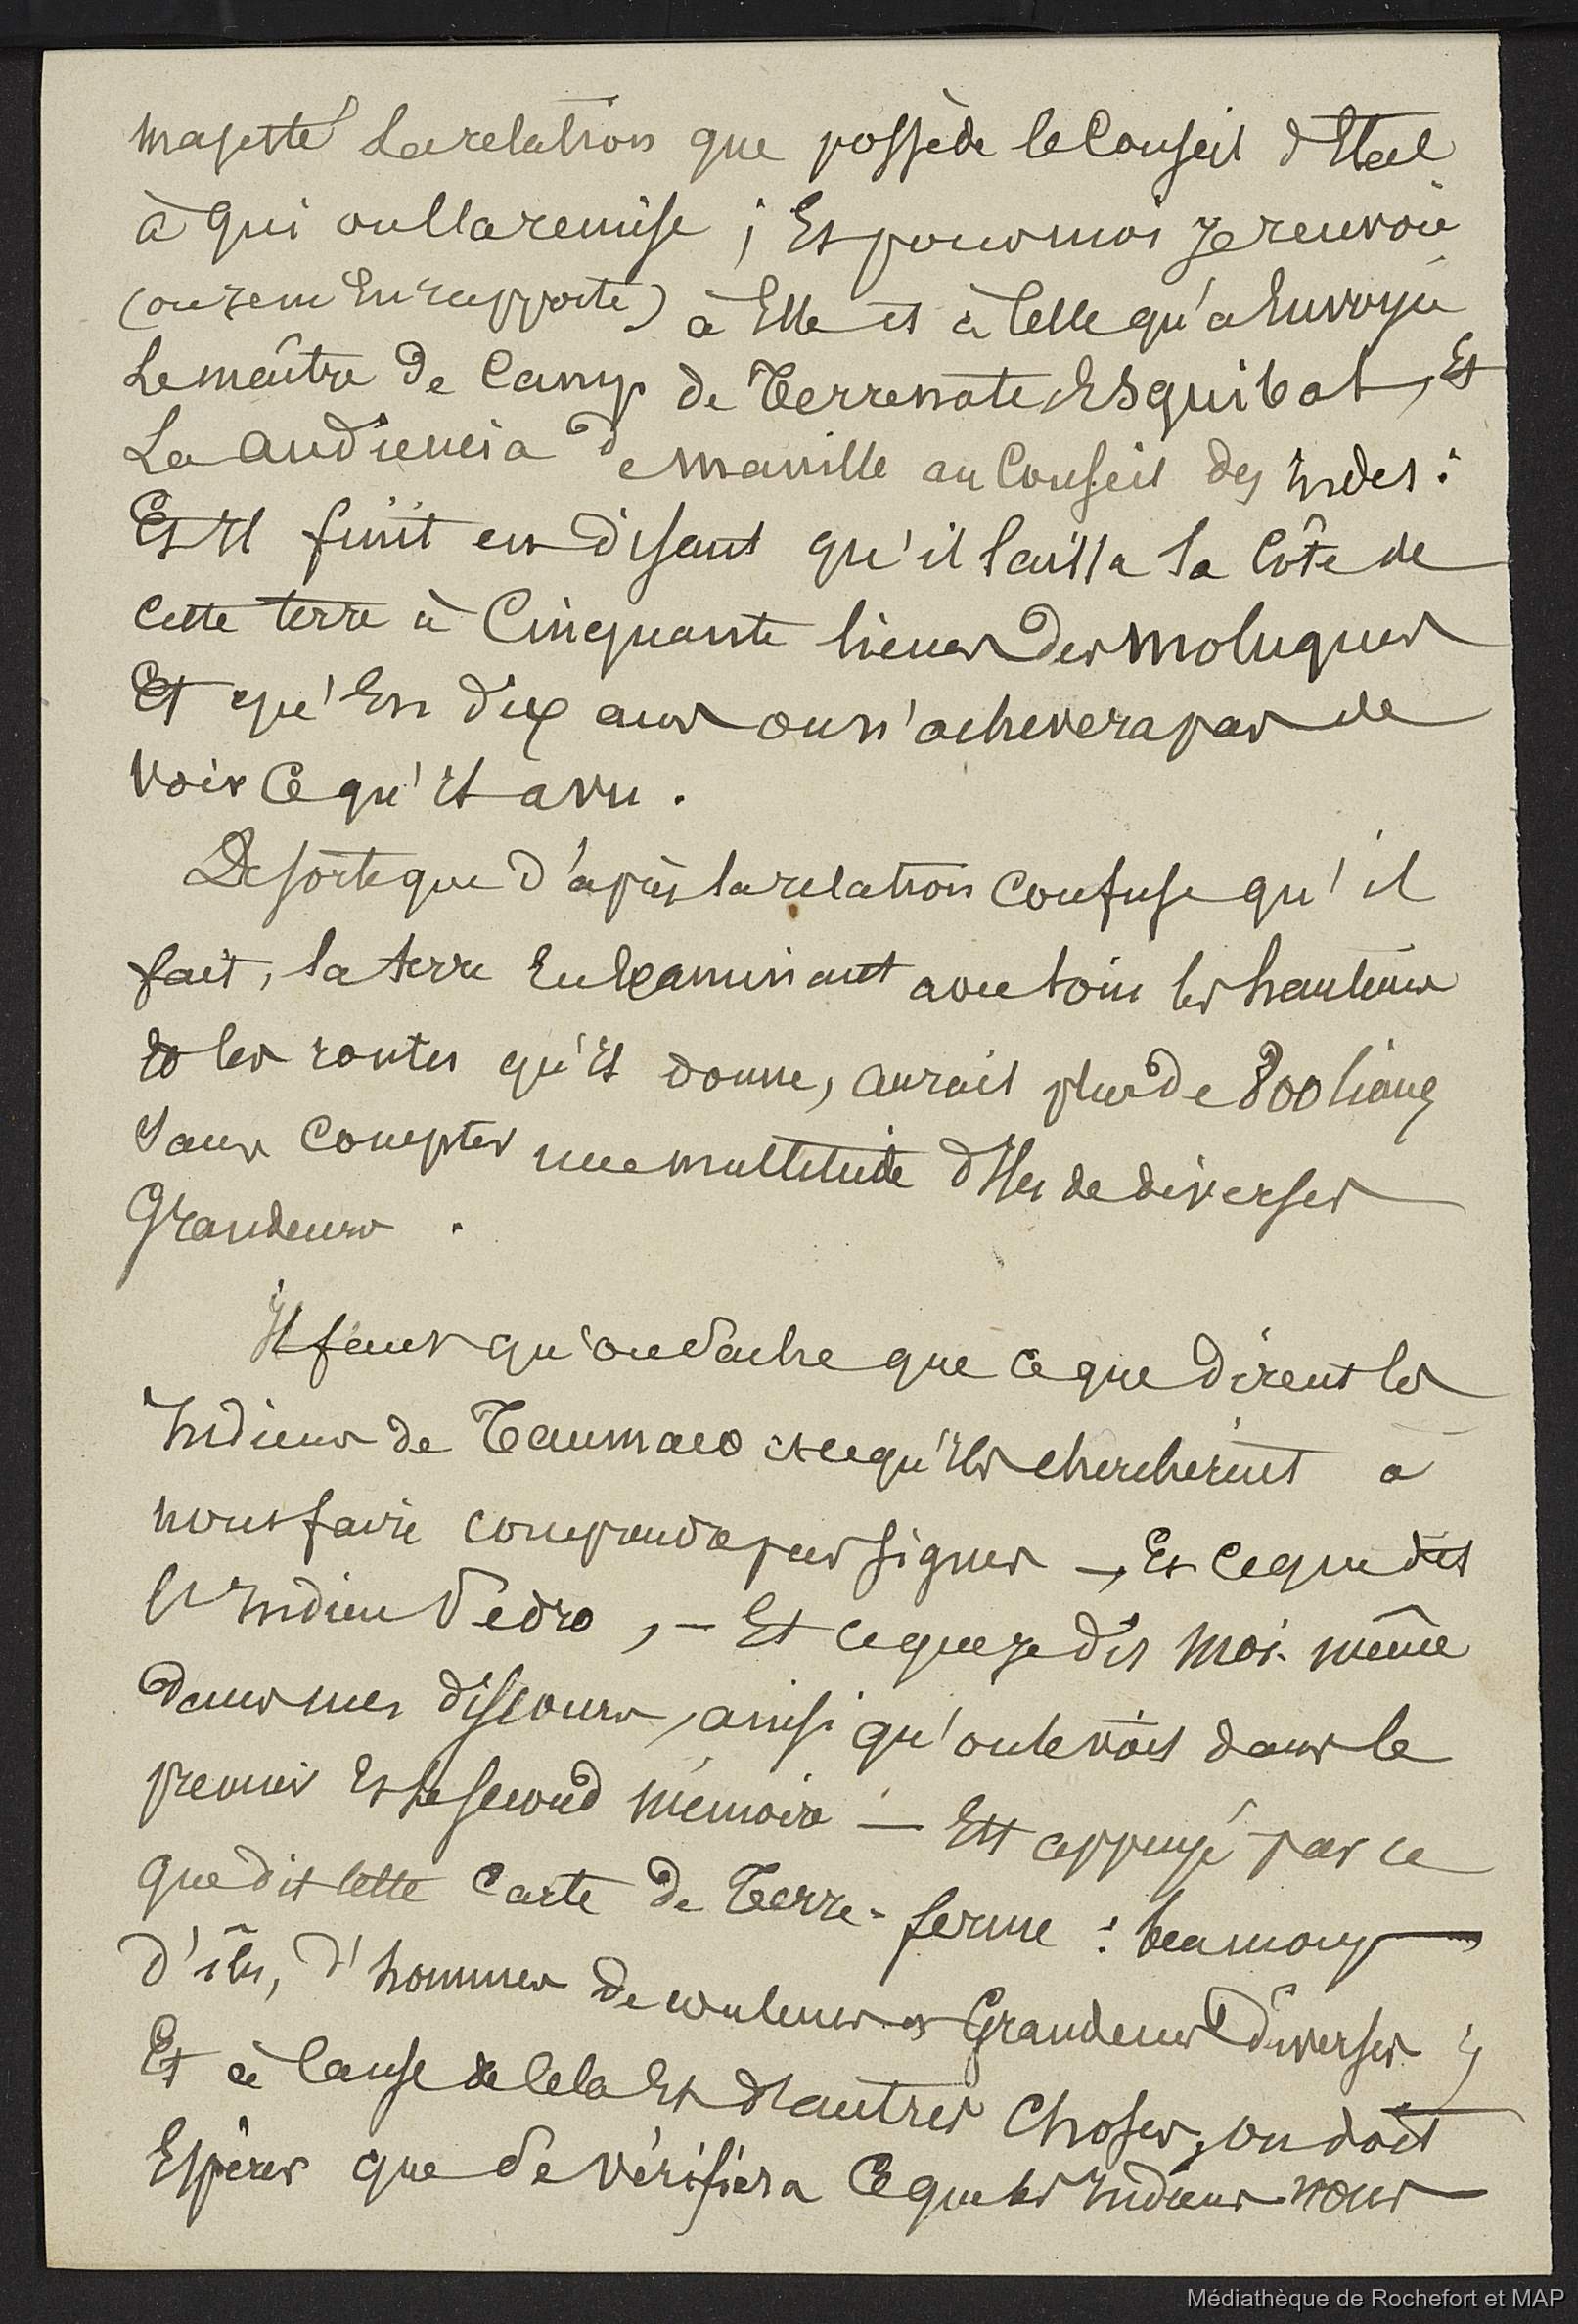 Majesté La relation que possède le Conseil d'Etat
à qui on l'a remise ; Et pour moi Je renvoie
(ou Je m'en rapporte) à Elle et à Celle qu'a Envoyée
Le maître de Camp de Terrenate Esquibal, Et
La audiencia de Manille au Conseil des Indes :
Et Il finit en disant qu'il laissa la Côte de
Cette terre à Cinquante lieues des Moluques
Et qu'En dix ans on n'achevera pas de
Voir Ce qu'il a vu .
De sorte que d'après la relation Confuse qu'il
fait, la terre En Examinant avec soin les hauteurs
Et les routes qu'il donne, aurait plus de 800 lieues
Sans Compter une multitude d'Iles de diverses
Grandeurs .
Il faut qu'on Sache que ce que dirent les
Indiens de Taumaco et ce qu'ils cherchèrent à
nous faire comprendre par signes —, Et Ce que dit
l'Indien Pedro , — Et ce que je dis moi-même
dans mes discours, ainsi qu'on le voit dans le
premier Et le second mémoire — Est appuyé par ce
que dit Cette Carte de Terre-ferme : beaucoup
d'îles, d'hommes de couleurs et Grandeurs diverses ;
Et à Cause de Cela Et d'autres Choses, on doit
Espérer que Se vérifiera Ce que les Indiens nous
Médiathèque de Rochefort et MAP